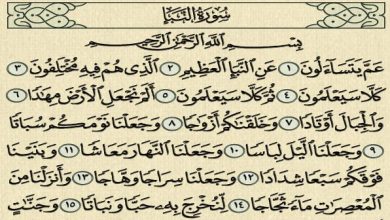 سُورَةُ النَّبَإِ
بِسْمِ اللَّهِ الرَّحْمَٰنِ الرَّحِيمِ
عَمَّ يَتَسَاءَلُونَ ١ عَنِ النَّبَإِ الْعَظِيمِ ٢ الَّذِي هُمْ فِيهِ مُخْتَلِفُونَ ٣
كَلَّا سَيَعْلَمُونَ ٤ ثُمَّ كَلَّا سَيَعْلَمُونَ ٥ أَلَمْ نَجْعَلِ الْأَرْضَ مِهَادًا ٦
وَالْجِبَالَ أَوْتَادًا ٧ وَخَلَقْنَاكُمْ أَزْوَاجًا ٨ وَجَعَلْنَا نَوْمَكُمْ سُبَاتًا
٩ وَجَعَلْنَا اللَّيْلَ لِبَاسًا ١٠ وَجَعَلْنَا النَّهَارَ مَعَاشًا ١١ وَبَنَيْنَا
فَوْقَكُمْ سَبْعًا شِدَادًا ١٢ وَجَعَلْنَا سِرَاجًا وَهَّاجًا ١٣ وَأَنْزَلْنَا مِنَ
الْمُعْصِرَاتِ مَاءً ثَجَّاجًا ١٤ لِنُخْرِجَ بِهِ حَبًّا وَنَبَاتًا ١٥ وَجَنَّاتٍ